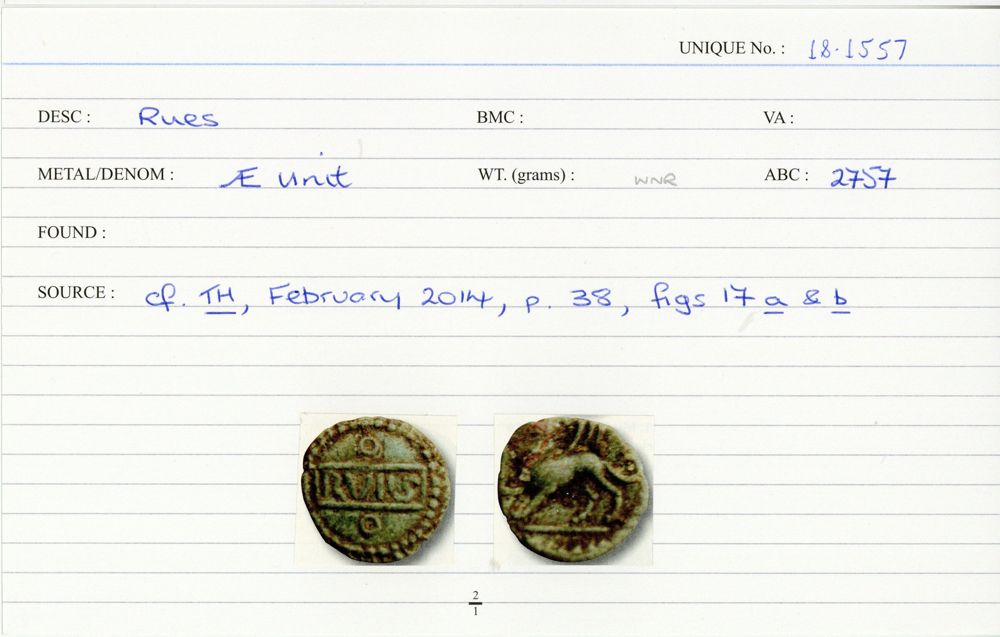 UNIQUE No. : 18·1557
DESC : Rues BMC : VA :
METAL/DENOM : Æ unit WT. (grams) : WNR ABC : 2757
FOUND :
SOURCE : cf. TH, February 2014, p. 38, figs 17 a & b
RVIS
2
1